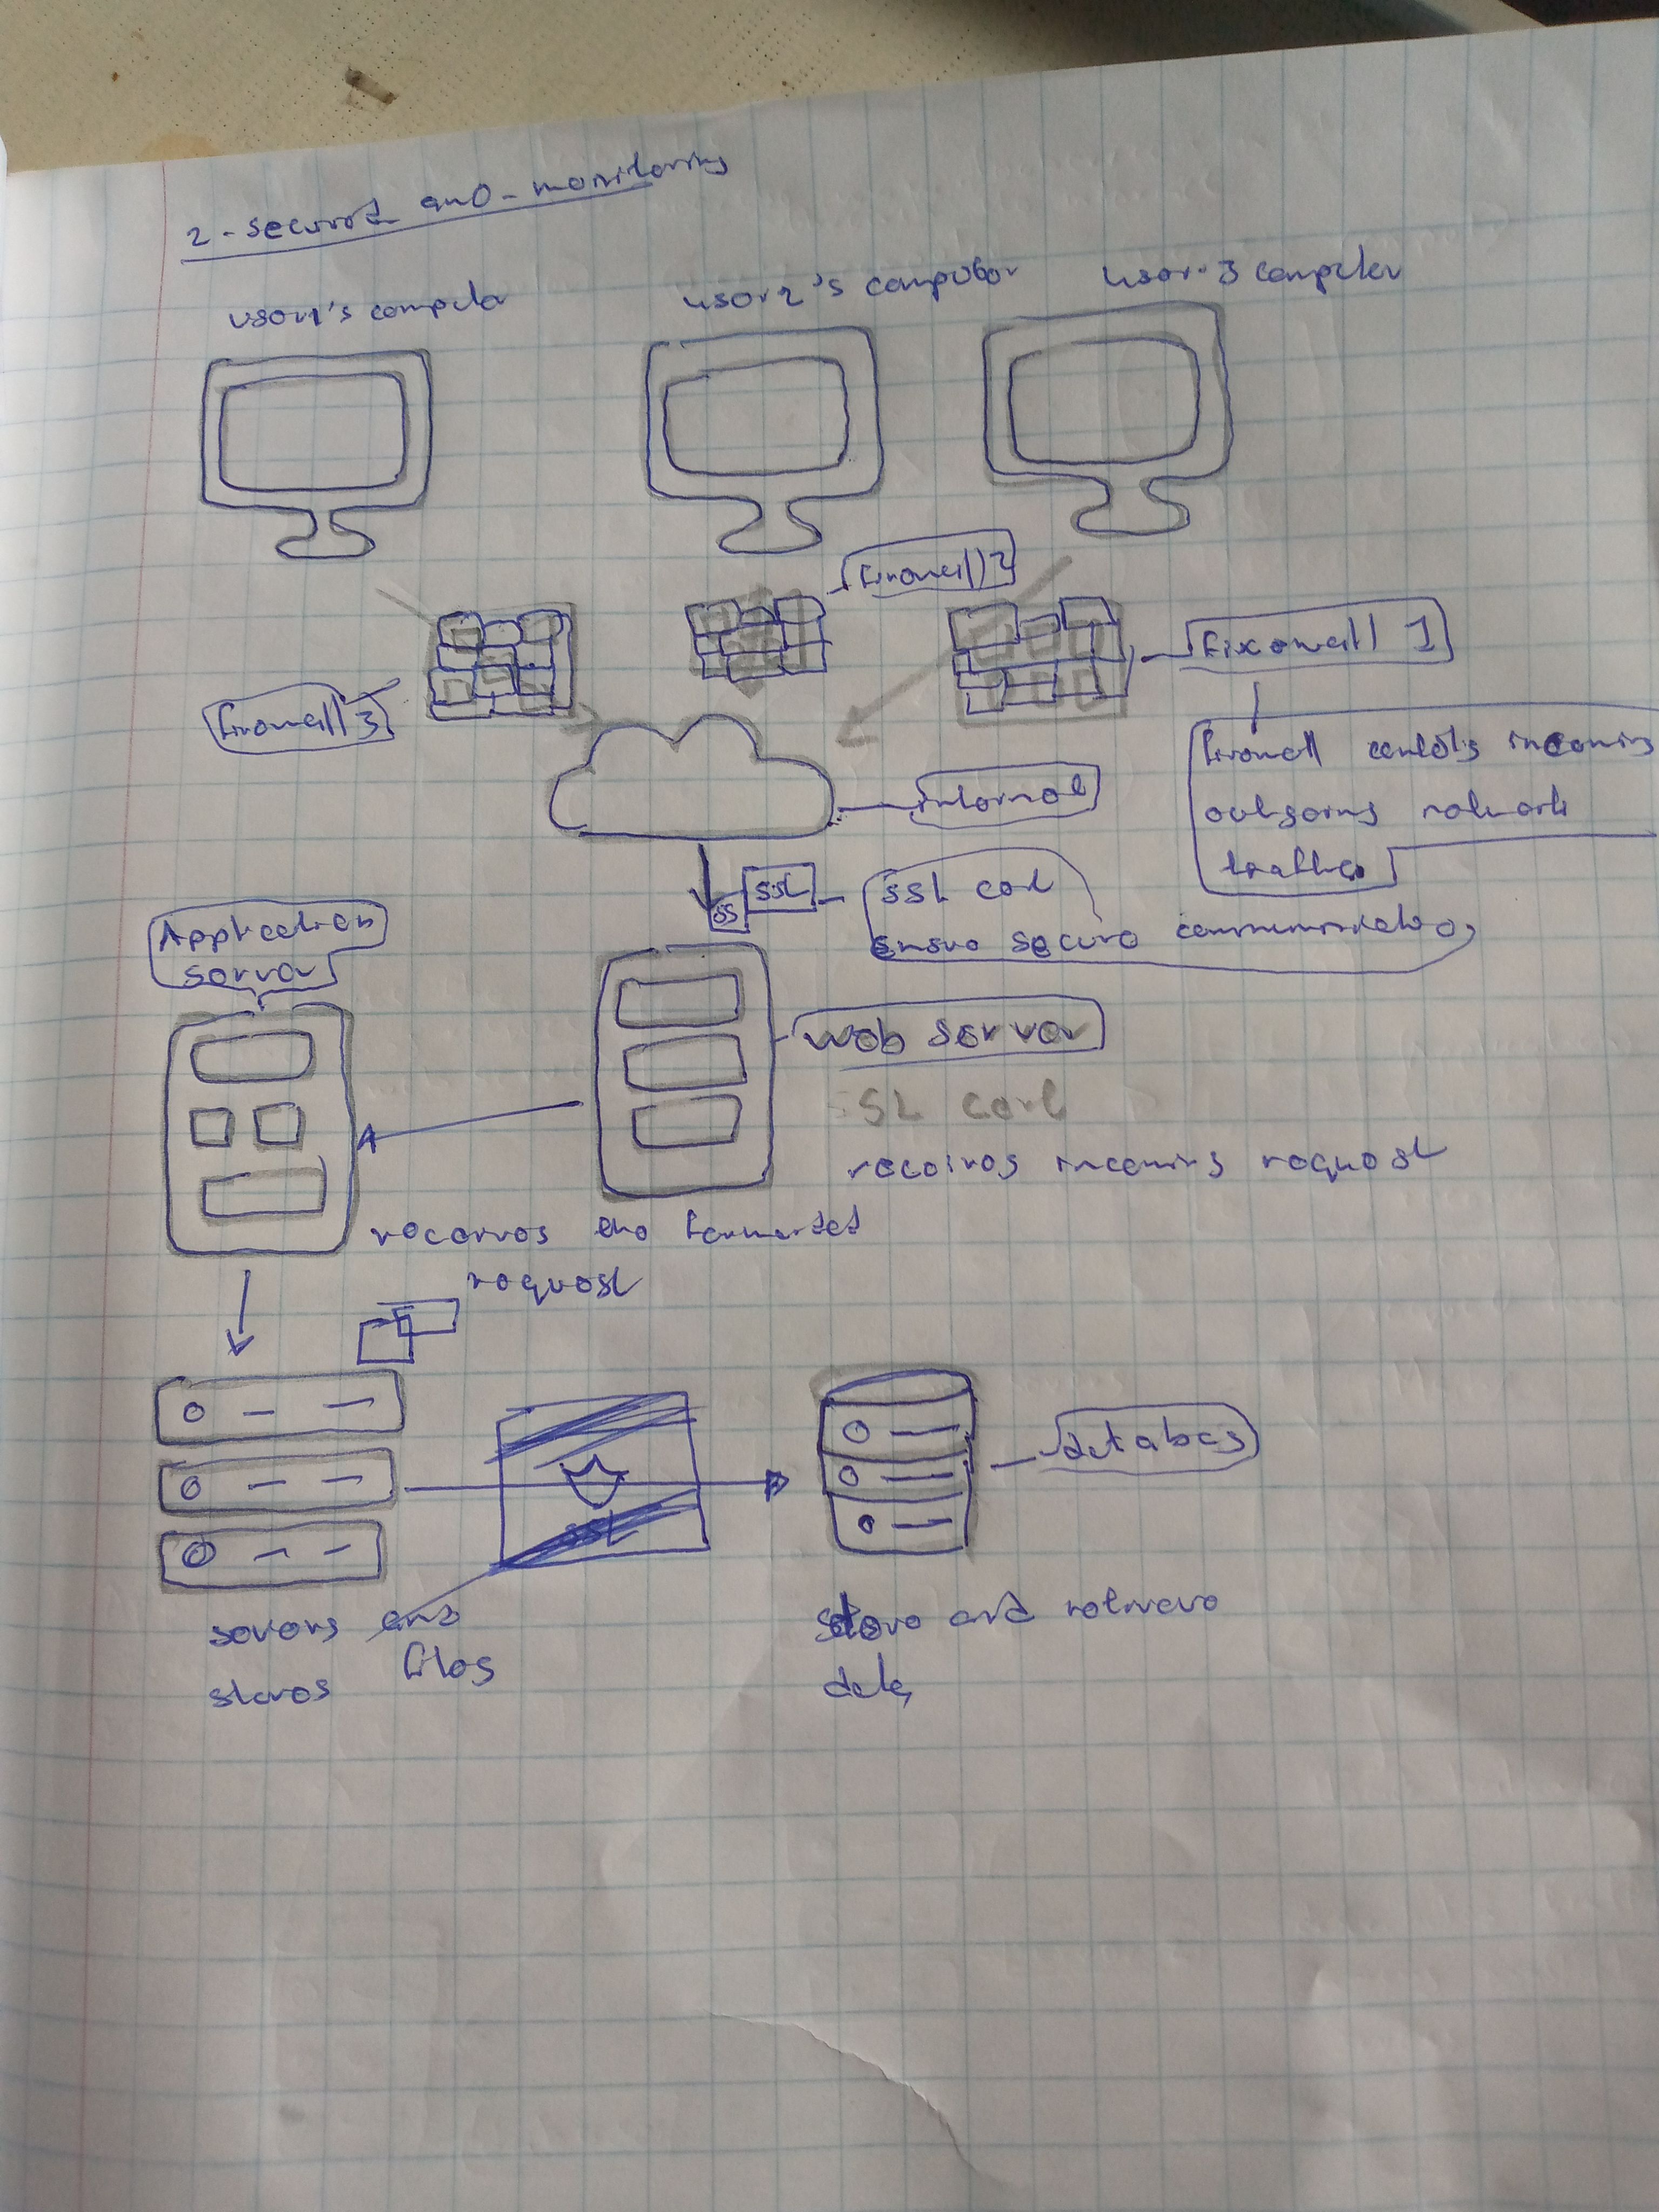 2 - secured and - monitoring
user1's computer
user2's computer
user-3 computer
firewall 2
firewall 1
firewall 3
firewall controls incoming
outgoing network
traffic
internet
SSL
SS
SSL cert
ensure secure communication
Application
server
web server
SSL cert
receives incoming request
receives the forwarded
request
SSL
databas
servers and
stores files
store and retrieve
data